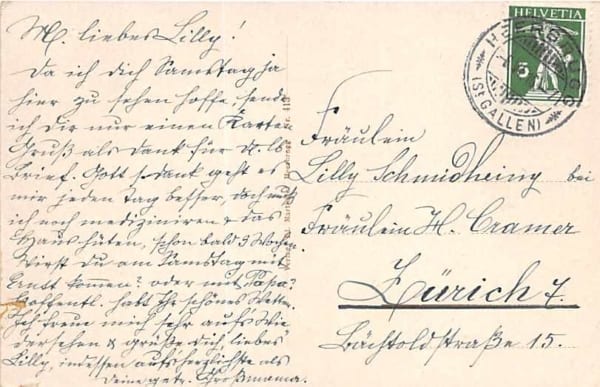 M. liebes Lilly!
Da ich dich Samstag ja
hier zu sehen hoffe, sende
ich Dir nur einen Karten
Gruß als Dank für d. lb
Brief. Gott s. dank geht es
mir jeden Tag besser, doch muß
ich noch medizinieren & das
Haus hüten, schon bald 3 Wochen.
Wirst Du am Samstag mit
Ernst kommen? oder mit Papa?
Hoffentl. habt Ihr schönes Wetter.
Ich freue mich sehr aufs Wie
dersehen & grüße Dich, liebes
Lilly, indessen aufs herzlichste als
Deine getr. Großmama.
HELVETIA
5
HEERBRUGG
(St GALLEN)
Fräulein
Lilly Schmidheiny bei
Fräulein H. Cramer
Zürich 7.
Bächtoldstraße 15.